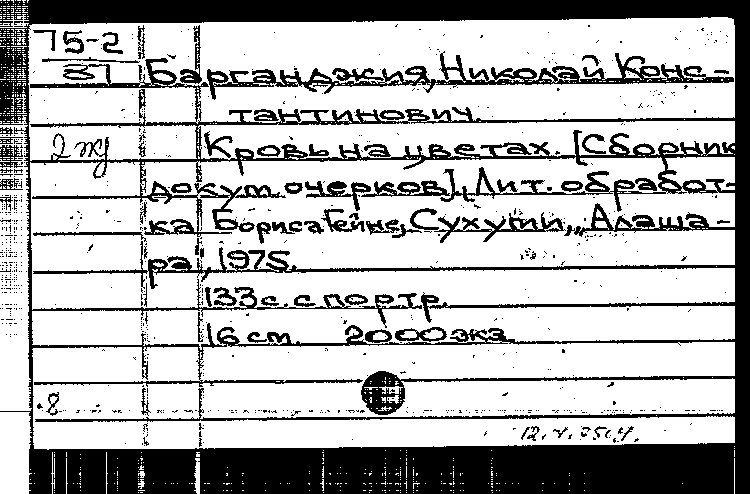 75-2
87 Барганджия, Николай Конс-
тантинович.
2 жу Кровь на цветах. [Сборник
докум. очерков]. Лит. обработ-
ка Бориса Гейне, Сухуми, „Алаша-
ра", 1975.
133 с. с портр.
16 см. 2000 экз.
8